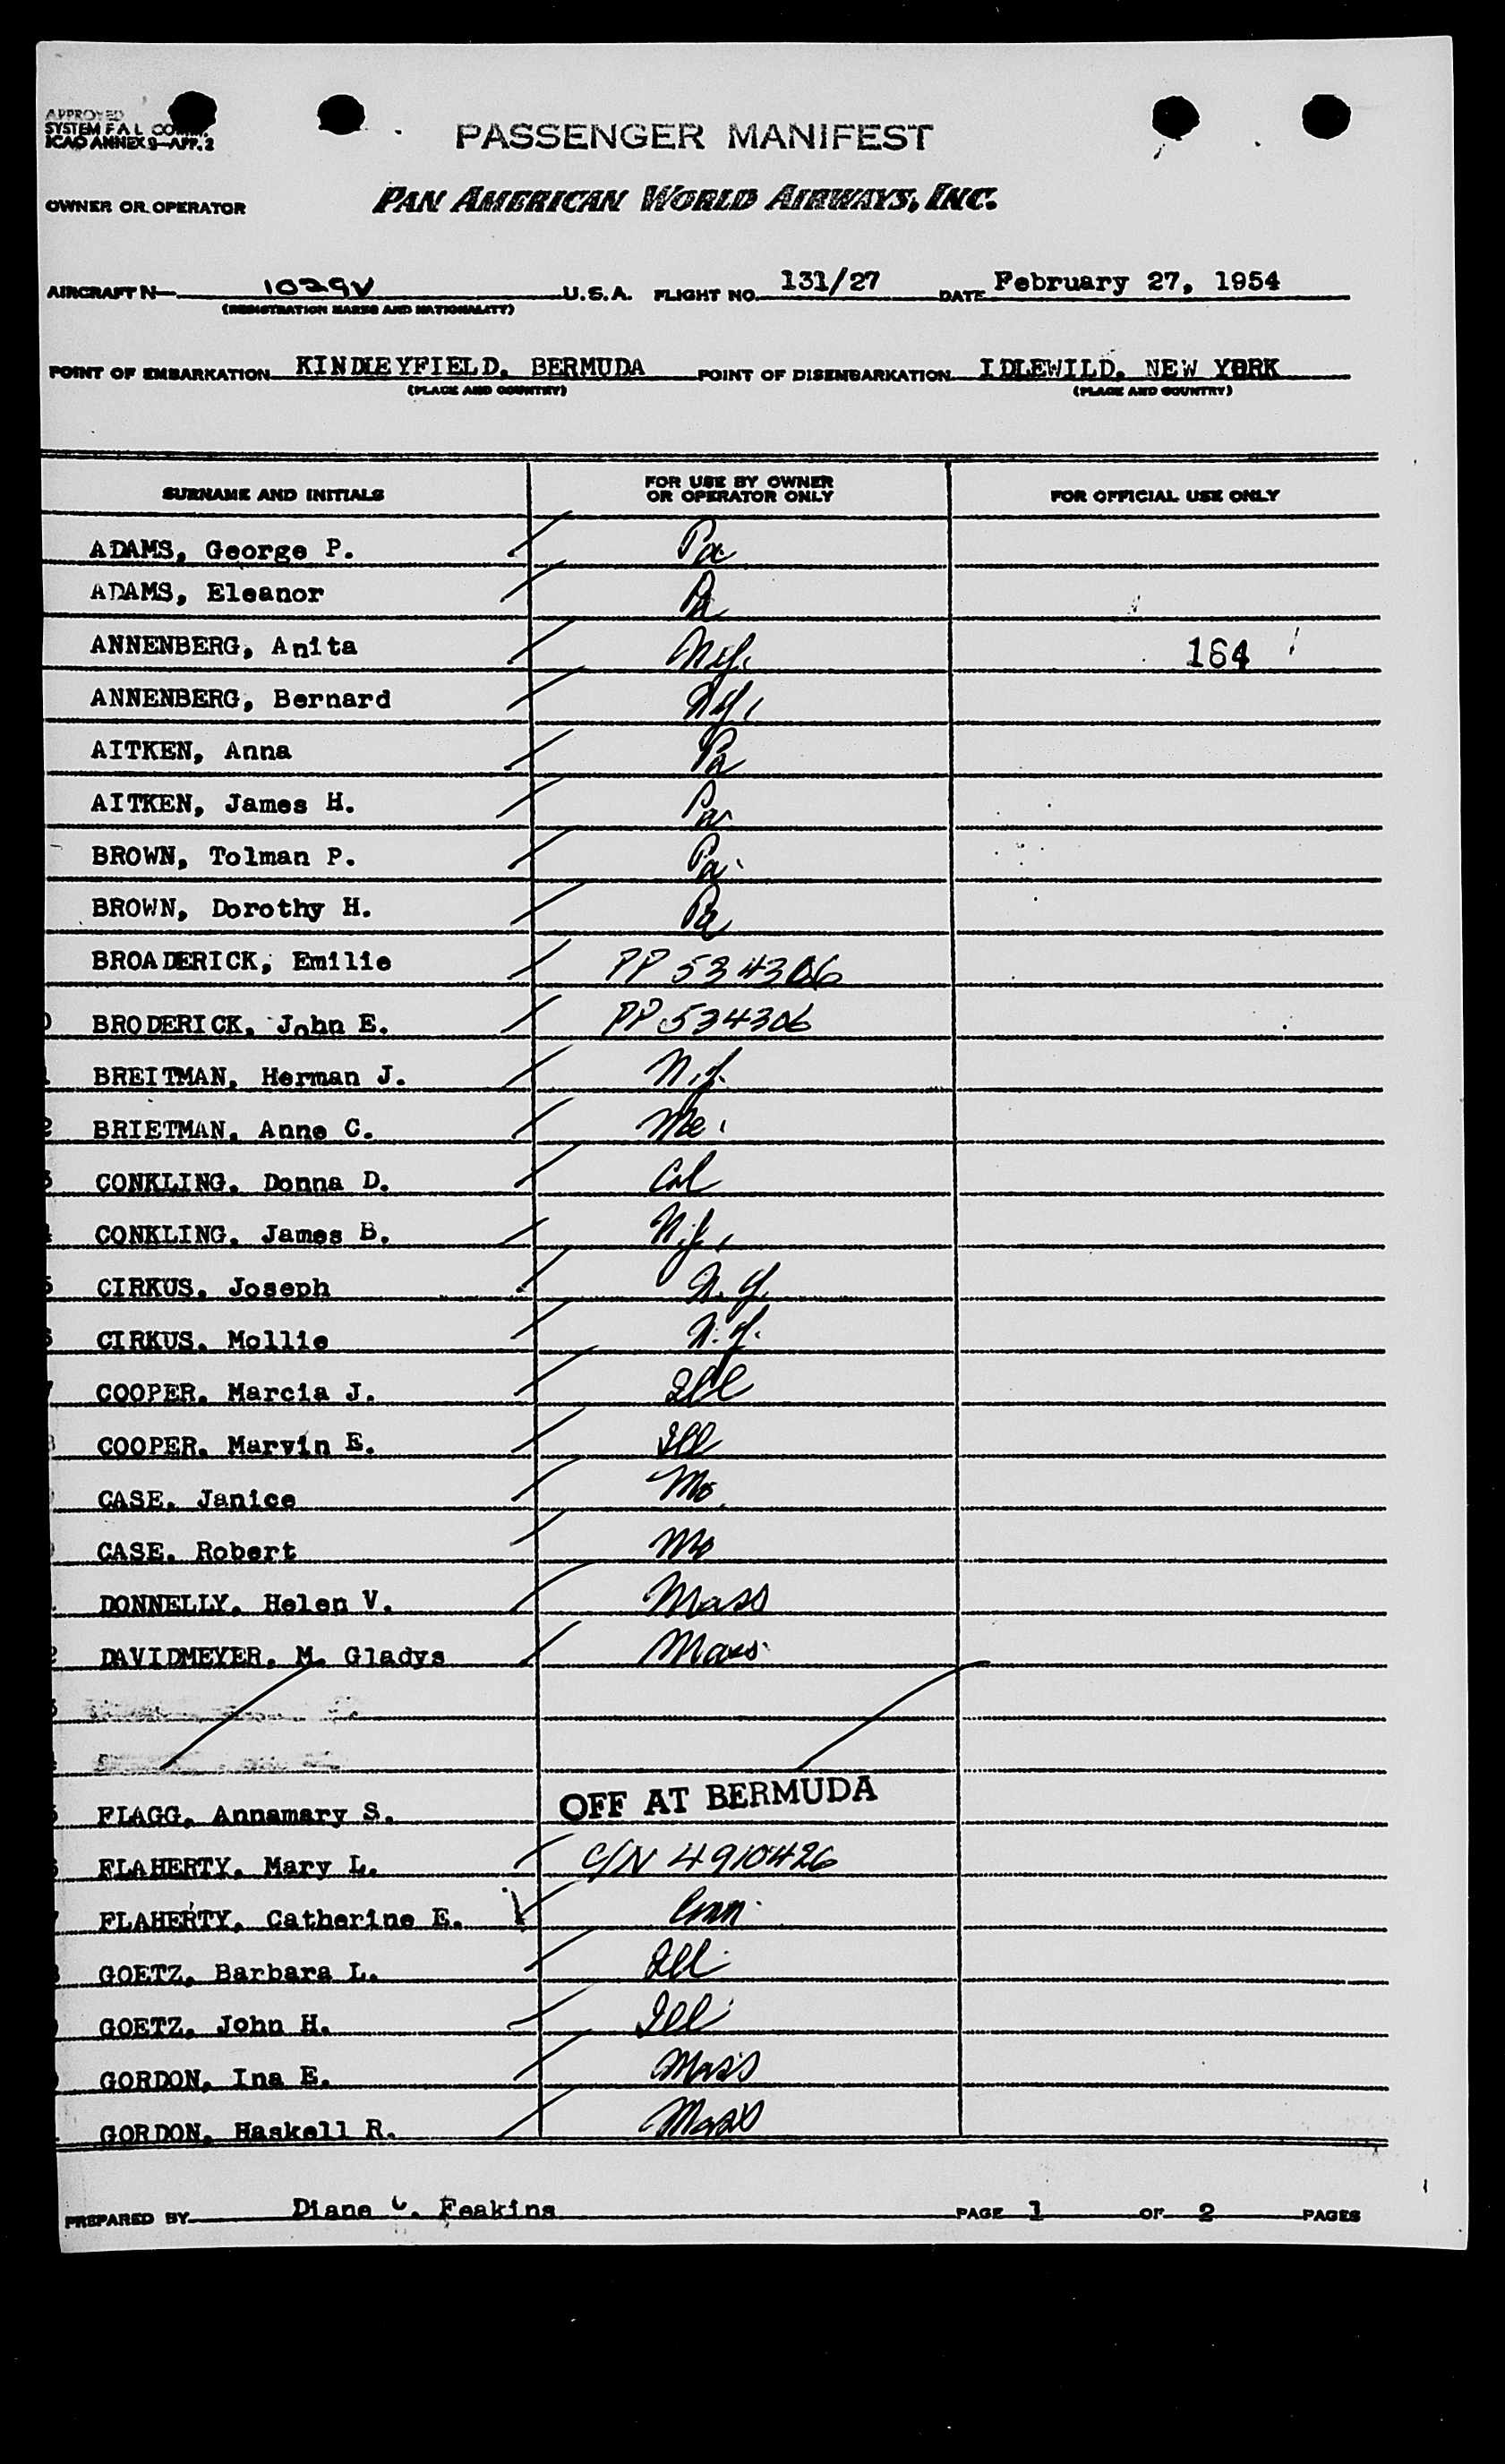 APPROVED
SYSTEM F A L COMM.
ICAO ANNEX 9—APP. 2
PASSENGER MANIFEST
OWNER OR OPERATOR PAN AMERICAN WORLD AIRWAYS, INC.
AIRCRAFT N— 1029V U.S.A. FLIGHT NO. 131/27 DATE February 27, 1954
(REGISTRATION MARKS AND NATIONALITY)
POINT OF EMBARKATION KINDLEYFIELD, BERMUDA POINT OF DISEMBARKATION IDLEWILD, NEW YORK
(PLACE AND COUNTRY) (PLACE AND COUNTRY)
SURNAME AND INITIALS FOR USE BY OWNER OR OPERATOR ONLY FOR OFFICIAL USE ONLY
ADAMS, George P. Pa
ADAMS, Eleanor Pa
ANNENBERG, Anita N.Y. 164
ANNENBERG, Bernard N.Y.
AITKEN, Anna Pa
AITKEN, James H. Pa
BROWN, Tolman P. Pa.
BROWN, Dorothy H. Pa
BROADERICK, Emilie PP 534306
BRODERICK, John E. PP 534306
BREITMAN, Herman J. N.J.
BRIETMAN, Anne C. Me.
CONKLING, Donna D. Cal
CONKLING, James B. N.J.
CIRKUS, Joseph N.Y.
CIRKUS, Mollie N.Y.
COOPER, Marcia J. Ill
COOPER, Marvin E. Ill
CASE, Janice Mo.
CASE, Robert Mo
DONNELLY, Helen V. Mass
DAVIDMEYER, M. Gladys Mass.
FLAGG, Annamary S. OFF AT BERMUDA
FLAHERTY, Mary L. C/N 4910426
FLAHERTY, Catherine E. Conn.
GOETZ, Barbara L. Ill.
GOETZ, John H. Ill.
GORDON, Ina E. Mass
GORDON, Haskell R. Mass
PREPARED BY Diane C. Feakins PAGE 1 OF 2 PAGES